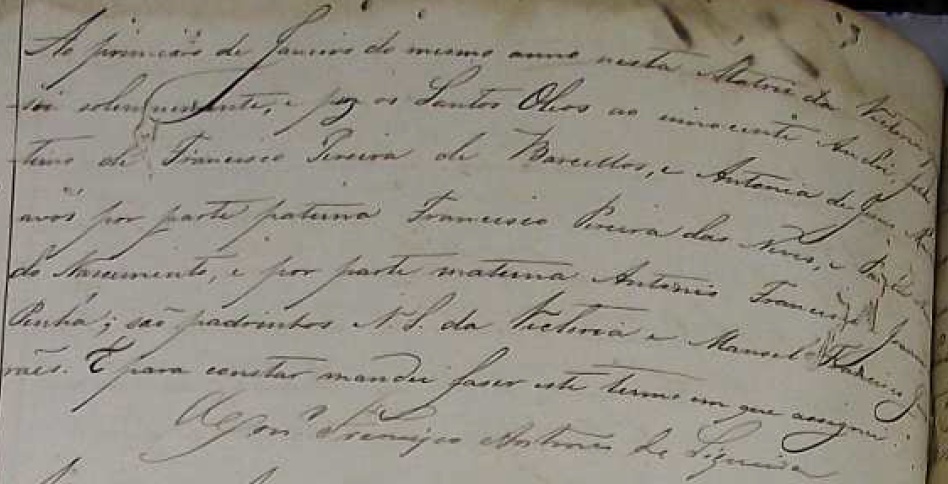 Ao primeiro de Janeiro do mesmo anno nesta Matriz da Victoria
solemnemente, e poz os Santos Oleos ao innocente André,
timo de Francisco Pereira de Barcellos, e Antonia de Jesus
avós por parte paterna Francisco Pereira das Neves, e
do Nascimento, e por parte materna Antonio Francisco
Penha; são padrinhos N. S. da Victoria e Manoel Francisco
rães. E para constar mandei faser este termo em que assignei.
Francisco Antunes de Siqueira